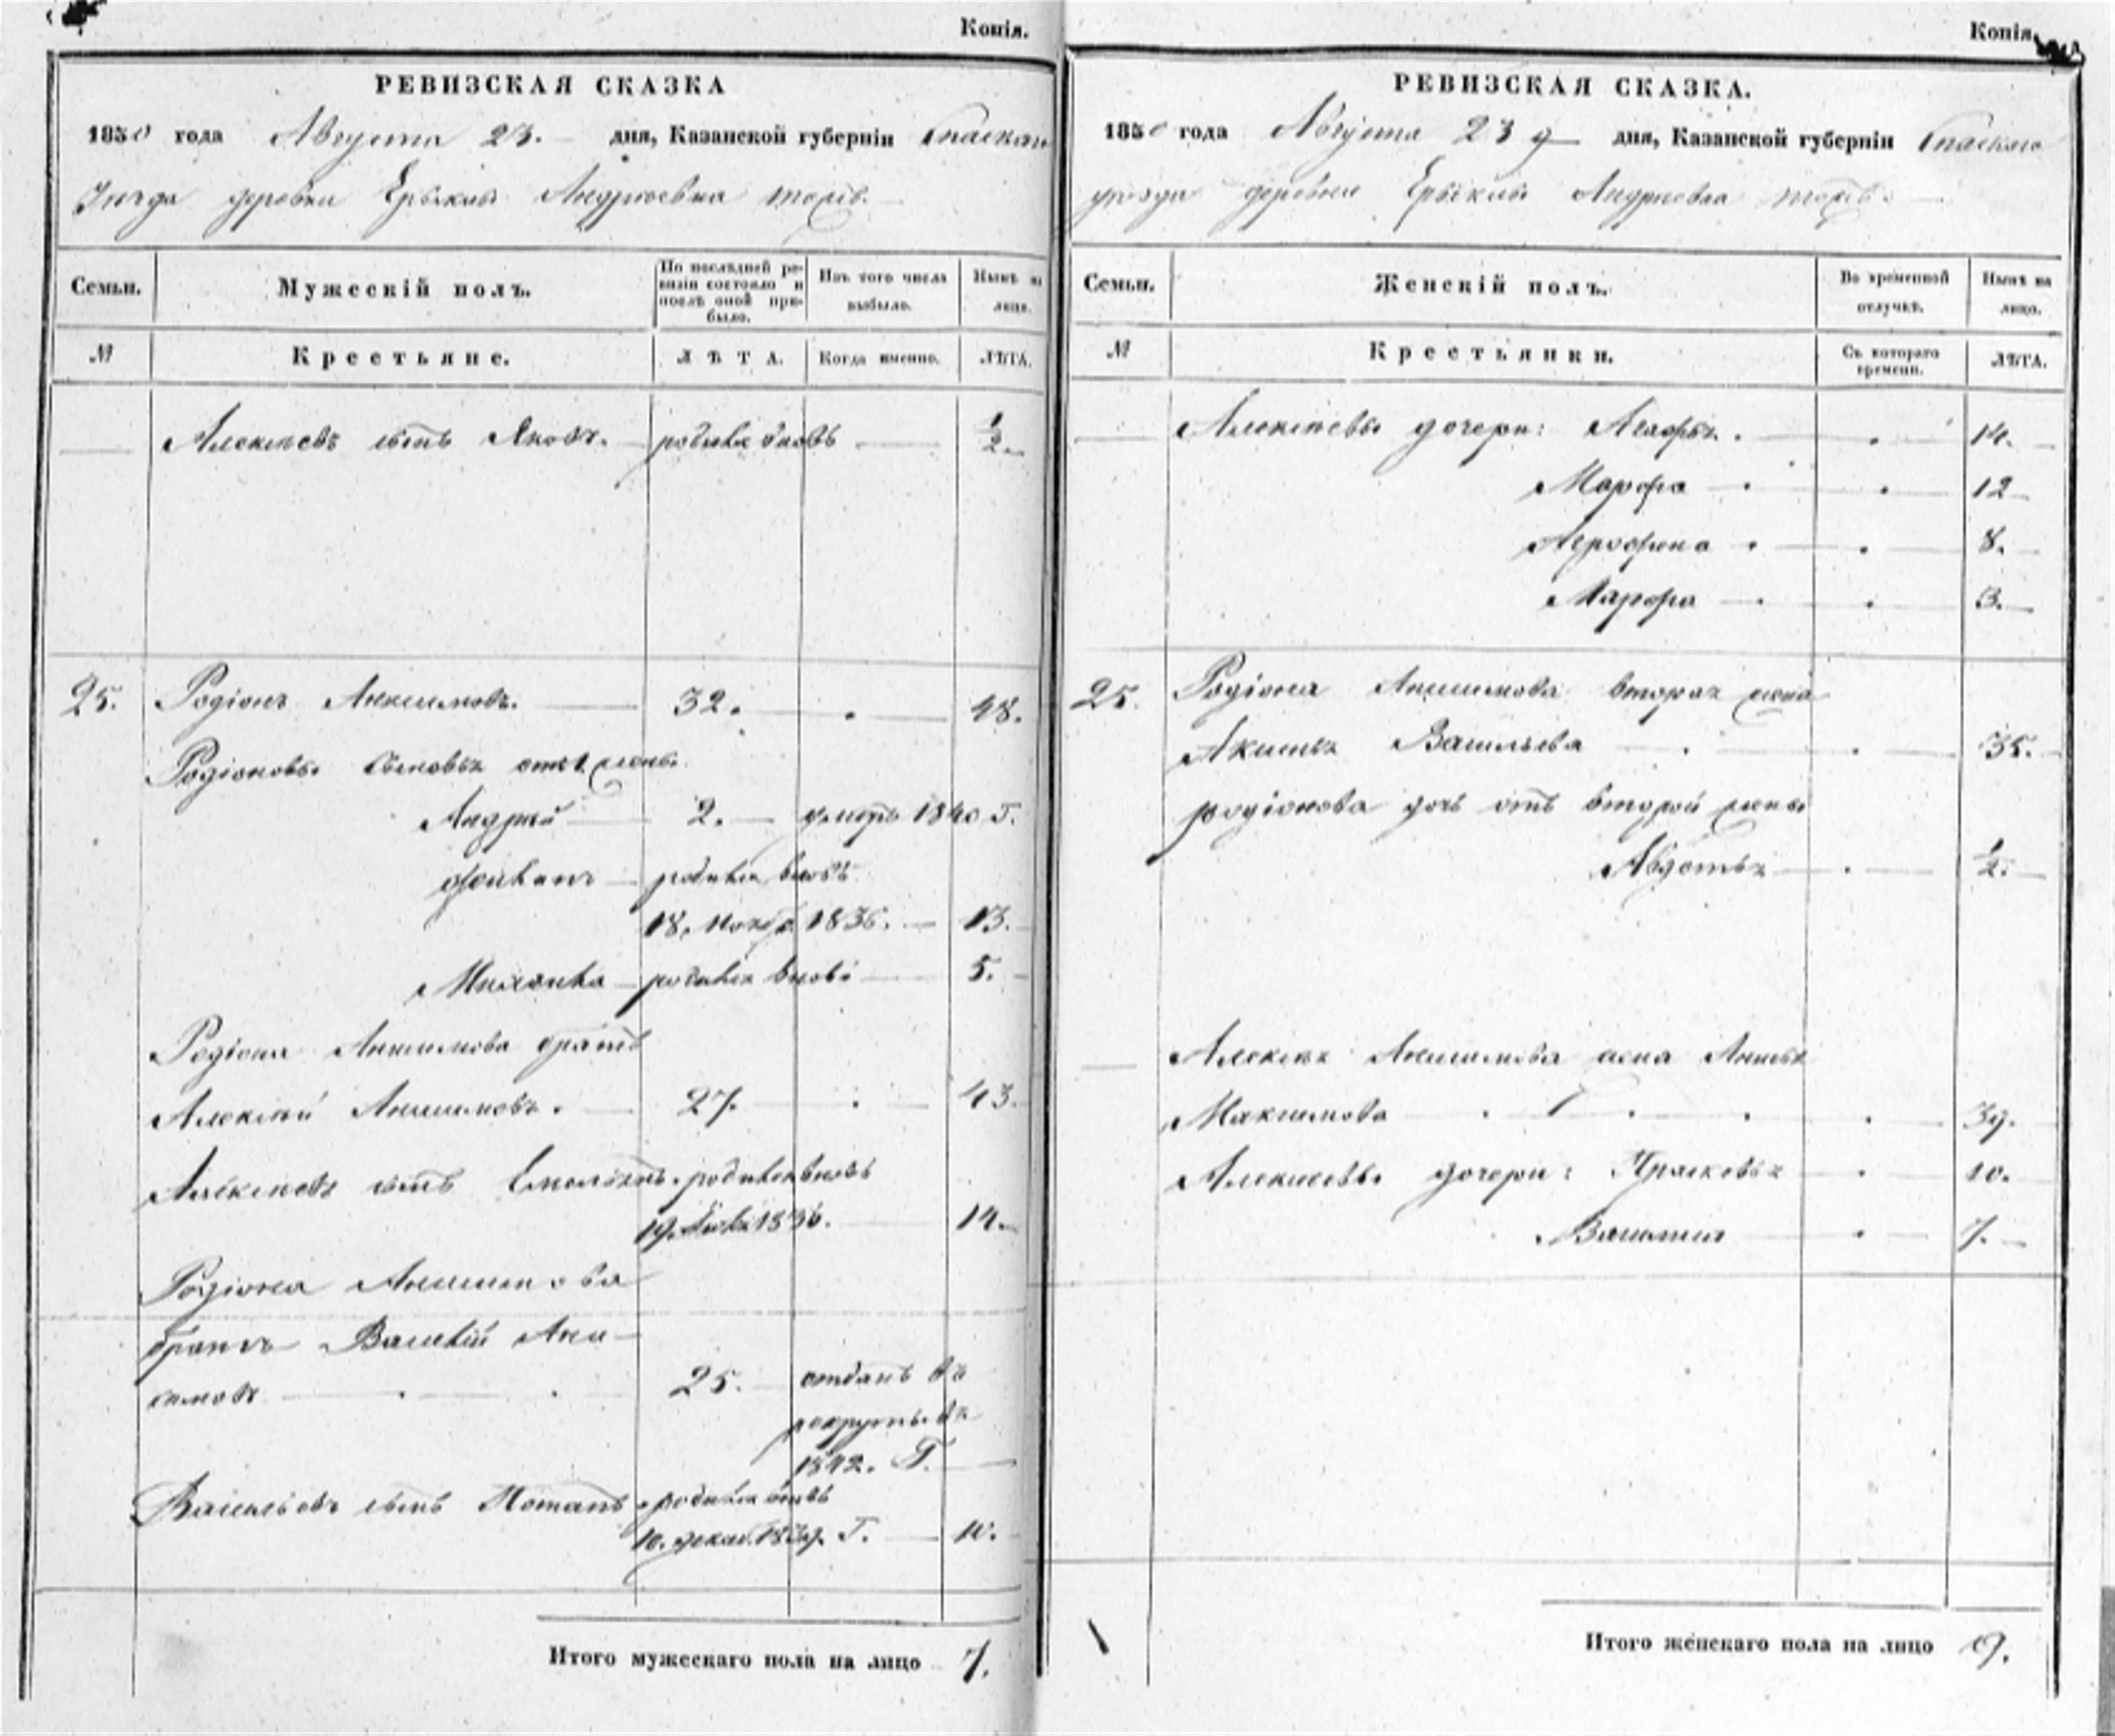 Копія.
РЕВИЗСКАЯ СКАЗКА
1850 года Августа 23. дня, Казанской губерніи Спаскаго
Уезда деревни Ерыклы Андреевка тожъ.
Семьи. Мужескій полъ. По послѣдней ревизіи состояло и послѣ оной прибыло. Изъ того числа выбыло. Нынѣ на лицо.
№ Крестьяне. ЛѢТА. Когда именно. ЛѢТА.
Алексѣевъ сынъ Яковъ. родился вновь 1/2.
25. Родіонъ Анисимовъ. 32. 48.
Родіоновы сыновья от 1 жены
Андрей 2. умеръ 1840 Г.
родился вновь
18, Нояб. 1836. 13.
родился вновь 5.
Родіона Анисимова братъ
Алексѣй Анисимовъ. 27. 43.
Алексѣевъ сынъ родился вновь
19. 1836. 14.
Родіона Анисимова
братъ Василій Ани-
симовъ 25. отданъ въ
рекруты въ
1842. Г.
Васильевъ сынъ Потапъ родился вновь
10. декаб. 1839. Г. 10.
Итого мужескаго пола на лицо 7.
Копія.
РЕВИЗСКАЯ СКАЗКА.
1850 года Августа 23 д дня, Казанской губерніи Спаскаго
уезда деревни Ерыклы Андреевка тожъ.
Семьи. Женскій полъ. Во временной отлучкѣ. Нынѣ на лицо.
№ Крестьянки. Съ котораго времени. ЛѢТА.
Алексѣевы дочери: Агафья. 14.
Марфа 12
Аграфена 8.
Марфа 3.
25. Родіона Анисимова вторая жена
Васильева 35.
родіонова дочь отъ второй жены
Авдотья 1/2.
Алексѣя Анисимова жена Анисья
Максимова 39.
Алексѣевы дочери: Прасковья 10.
7.
Итого женскаго пола на лицо 9.